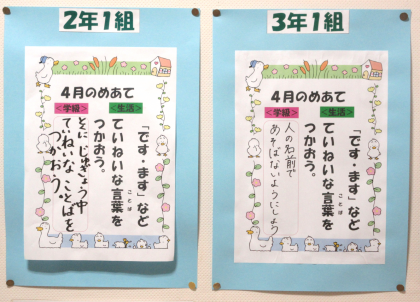 2年1組
4月のめあて
<生活>
「です・ます」など
ていねいな言葉を
ことば
つかおう。
<学級>
とくに じゅぎょう中
ていねいな ことばを
つかおう。
3年1組
4月のめあて
<生活>
「です・ます」など
ていねいな言葉を
ことば
つかおう。
<学級>
人の名前で
あそばないようにしよう